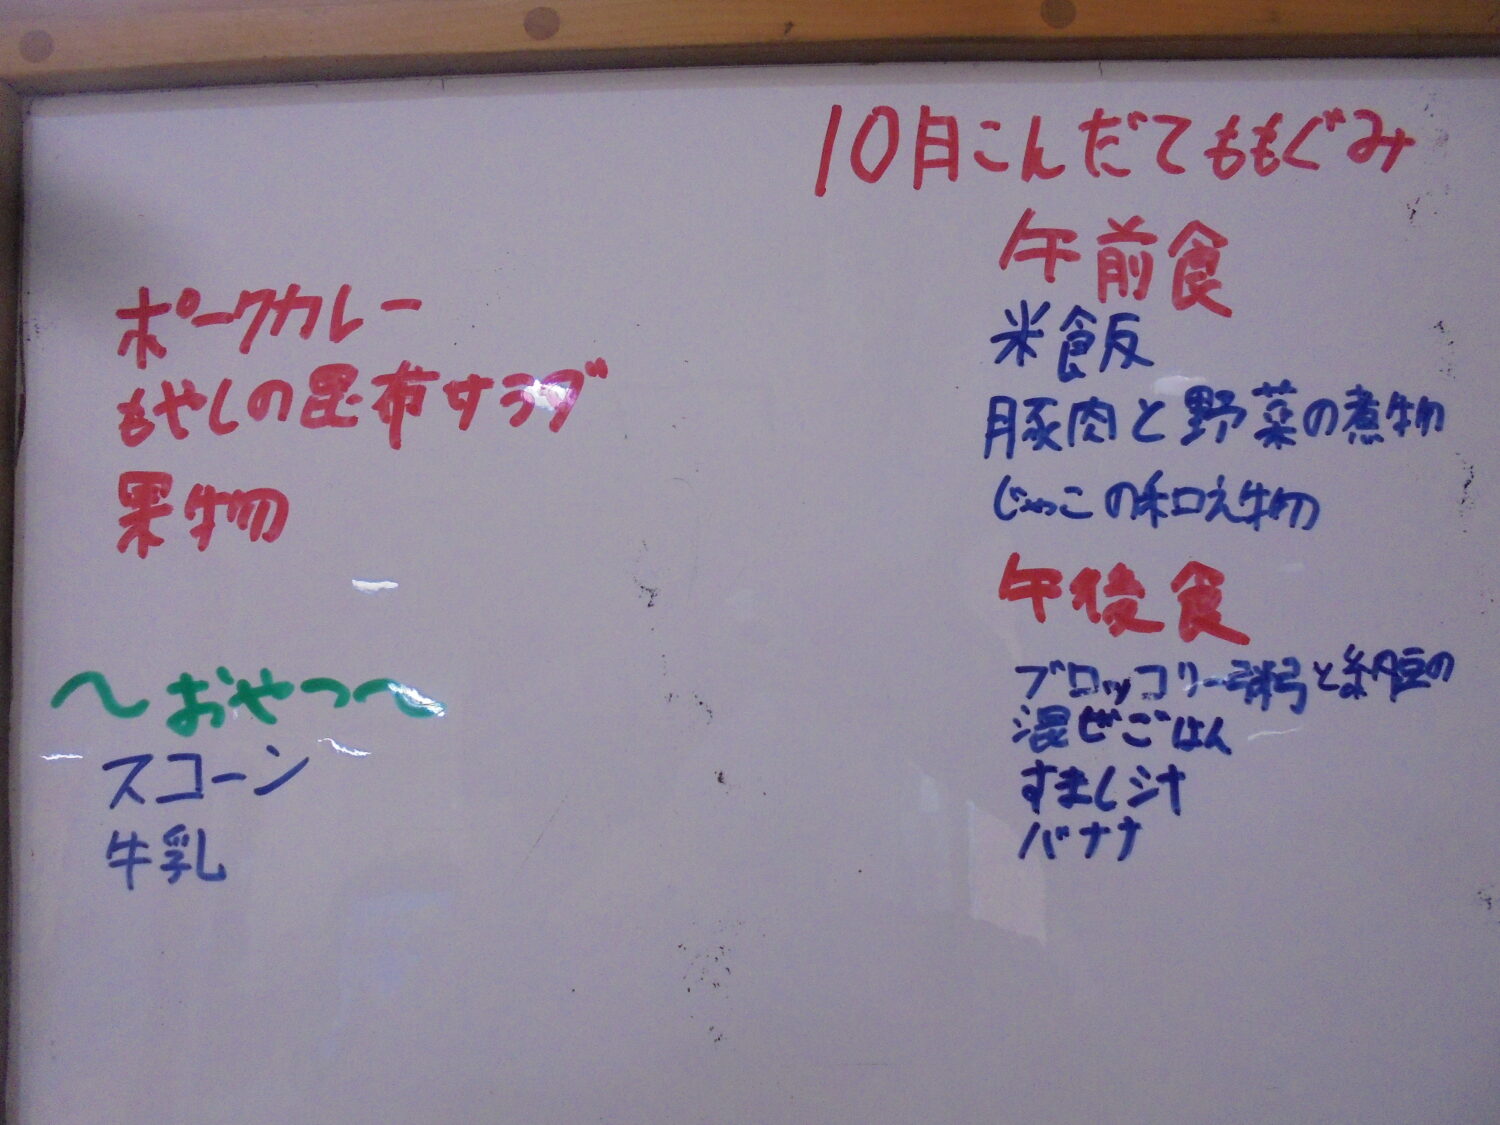 ポークカレー
もやしの昆布サラダ
果物
～おやつ～
スコーン
牛乳
10月こんだてももぐみ
午前食
米飯
豚肉と野菜の煮物
じゃこの和え物
午後食
ブロッコリー粥と納豆の
混ぜごはん
すまし汁
バナナ